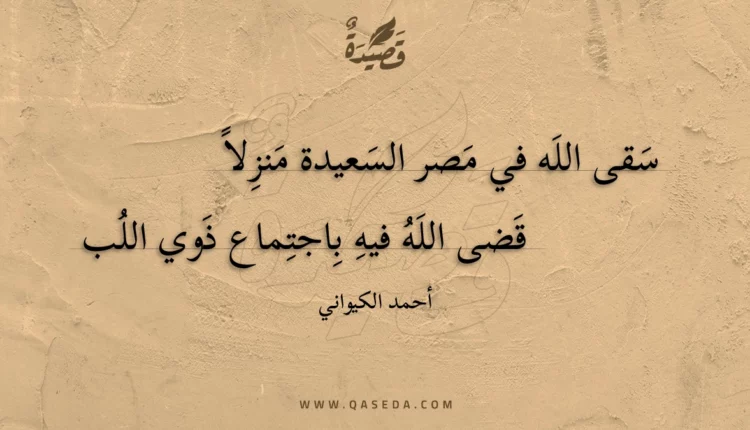 قَصِيدَةٌ
سَقى اللَه في مَصر السَعيدة مَنزِلاً
قَضى اللَهُ فيهِ بِاجتِماع ذَوي اللُب
أحمد الكيواني
WWW.QASEDA.COM